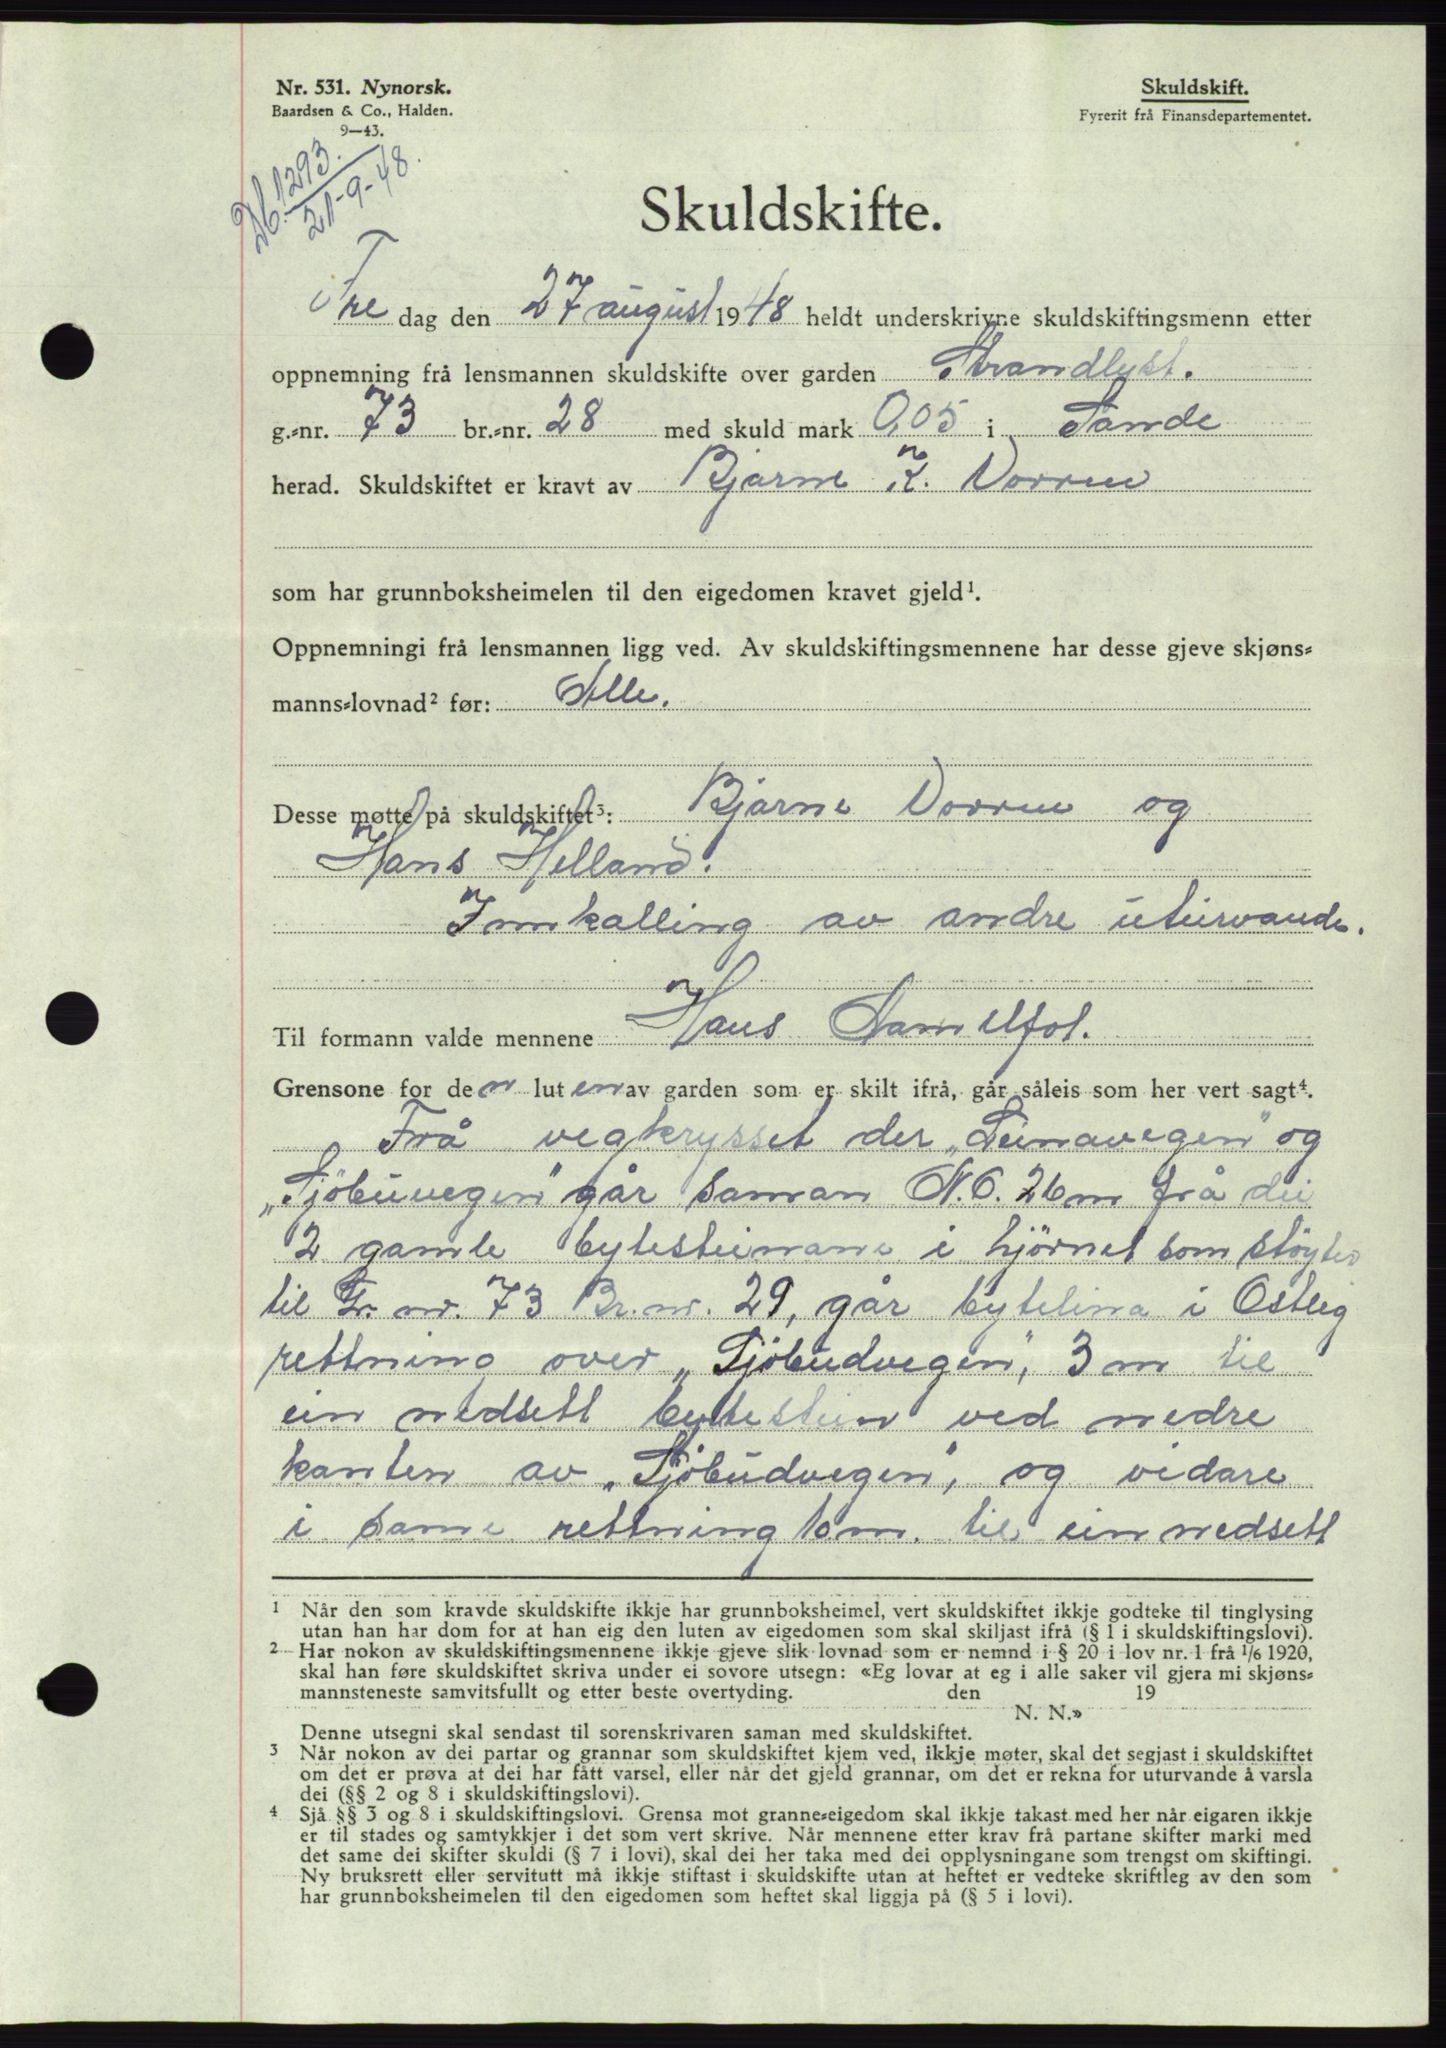 Nr. 531. Nynorsk.
Baardsen & Co., Halden.
9—43.
Skuldskift.
Fyrerit frå Finansdepartementet.
Db. 1293.
21-9-48.
Skuldskifte.
Fredag den 27 august 1948 heldt underskrivne skuldskiftingsmenn etter
oppnemning frå lensmannen skuldskifte over garden Strandlyst.
g.-nr. 73 br.-nr. 28 med skuld mark 0,05 i Sande
herad. Skuldskiftet er kravt av Bjarne K. Vorren
som har grunnboksheimelen til den eigedomen kravet gjeld¹.
Oppnemningi frå lensmannen ligg ved. Av skuldskiftingsmennene har desse gjeve skjøns-
manns-lovnad² før: Alle.
Desse møtte på skuldskiftet³: Bjarne Vorren og
Hans Helland.
Innkalling av andre uturvande.
Til formann valde mennene Hans
Grensone for den luten av garden som er skilt ifrå, går såleis som her vert sagt⁴.
Frå vegkrysset der „Leinavegen" og
„Sjöbuvegen" går saman N.O. 26m frå dei
2 gamle bytesteinane i hjörnet som stöyter
til Gr. nr. 73 Br. nr. 29, går bytelina i Ostleg
rettning over „Sjöbudvegen", 3 m til
ein nedsett bytestein ved nedre
kanten av „Sjöbudvegen", og vidare
i same rettning 10m. til ein nedsett
1 Når den som kravde skuldskifte ikkje har grunnboksheimel, vert skuldskiftet ikkje godteke til tinglysing
utan han har dom for at han eig den luten av eigedomen som skal skiljast ifrå (§ 1 i skuldskiftingslovi).
2 Har nokon av skuldskiftingsmennene ikkje gjeve slik lovnad som er nemnd i § 20 i lov nr. 1 frå 1/6 1920,
skal han føre skuldskiftet skriva under ei sovore utsegn: «Eg lovar at eg i alle saker vil gjera mi skjøns-
mannsteneste samvitsfullt og etter beste overtyding. den 19
N. N.»
Denne utsegni skal sendast til sorenskrivaren saman med skuldskiftet.
3 Når nokon av dei partar og grannar som skuldskiftet kjem ved, ikkje møter, skal det segjast i skuldskiftet
om det er prøva at dei har fått varsel, eller når det gjeld grannar, om det er rekna for uturvande å varsla
dei (§§ 2 og 8 i skuldskiftingslovi).
4 Sjå §§ 3 og 8 i skuldskiftingslovi. Grensa mot granne-eigedom skal ikkje takast med her når eigaren ikkje
er til stades og samtykkjer i det som vert skrive. Når mennene etter krav frå partane skifter marki med
det same dei skifter skuldi (§ 7 i lovi), skal dei her taka med dei opplysningane som trengst om skiftingi.
Ny bruksrett eller servitutt må ikkje stiftast i skuldskifte utan at heftet er vedteke skriftleg av den som
har grunnboksheimelen til den eigedomen som heftet skal liggja på (§ 5 i lovi).